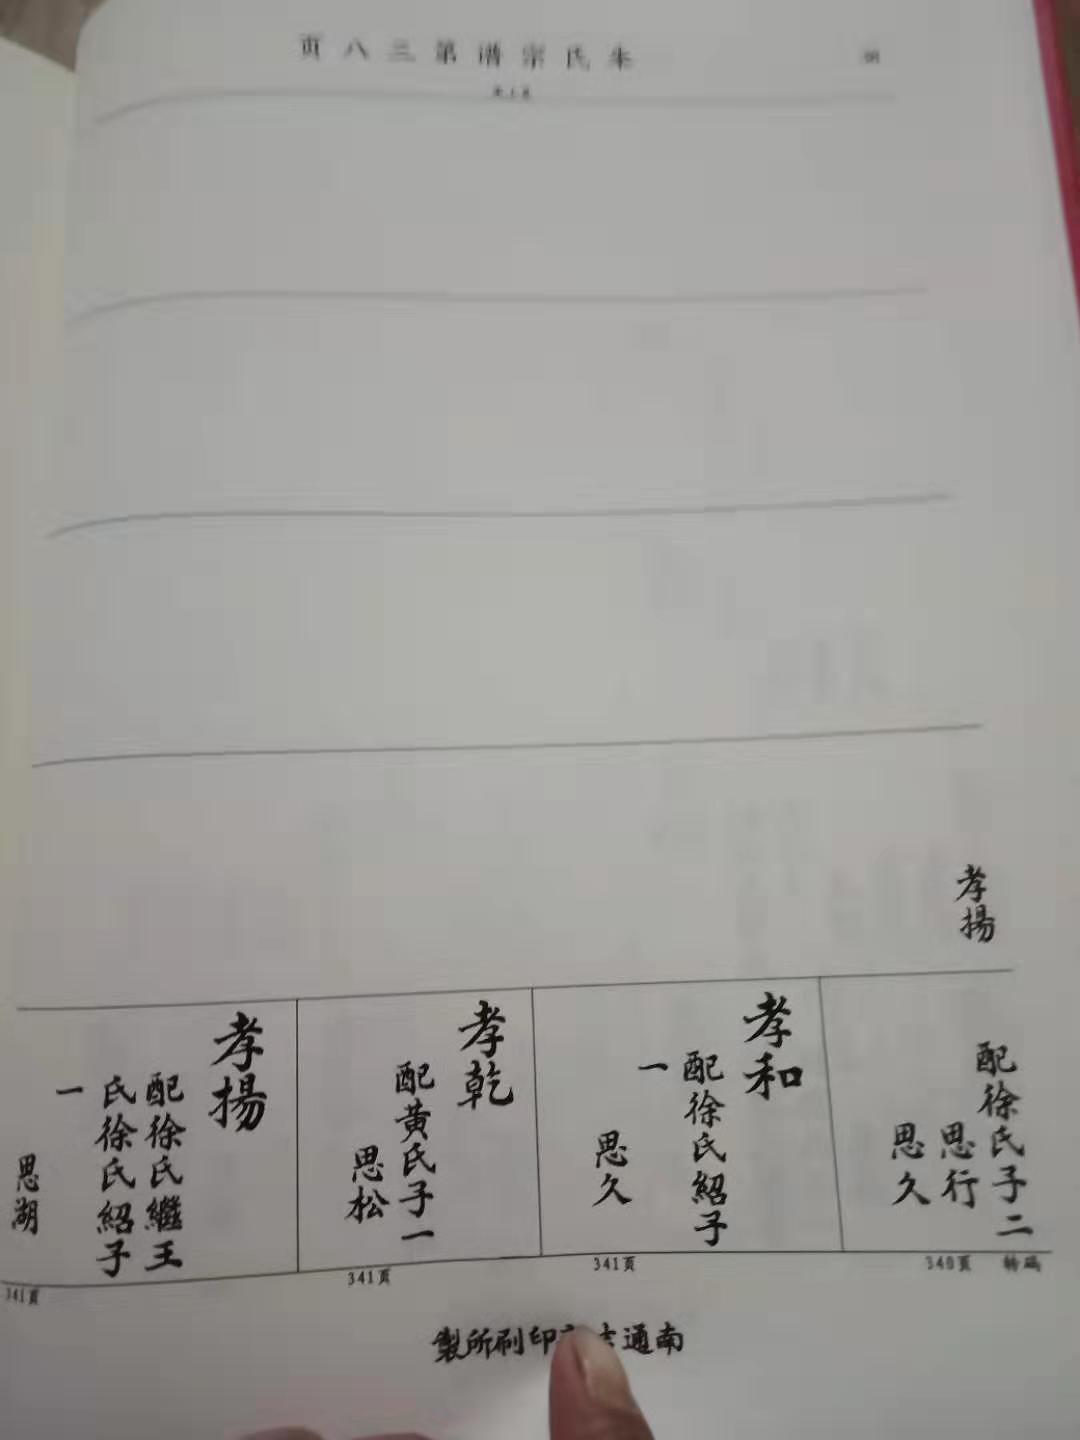 朱氏宗谱第三八页
孝揚
配徐氏子二
思行
思久
孝和
配徐氏紹子
一
思久
孝乾
配黄氏子一
思松
孝揚
配徐氏繼王
氏徐氏紹子
一
思湖
转码 340页
341页
341页
341页
南通 印刷所製